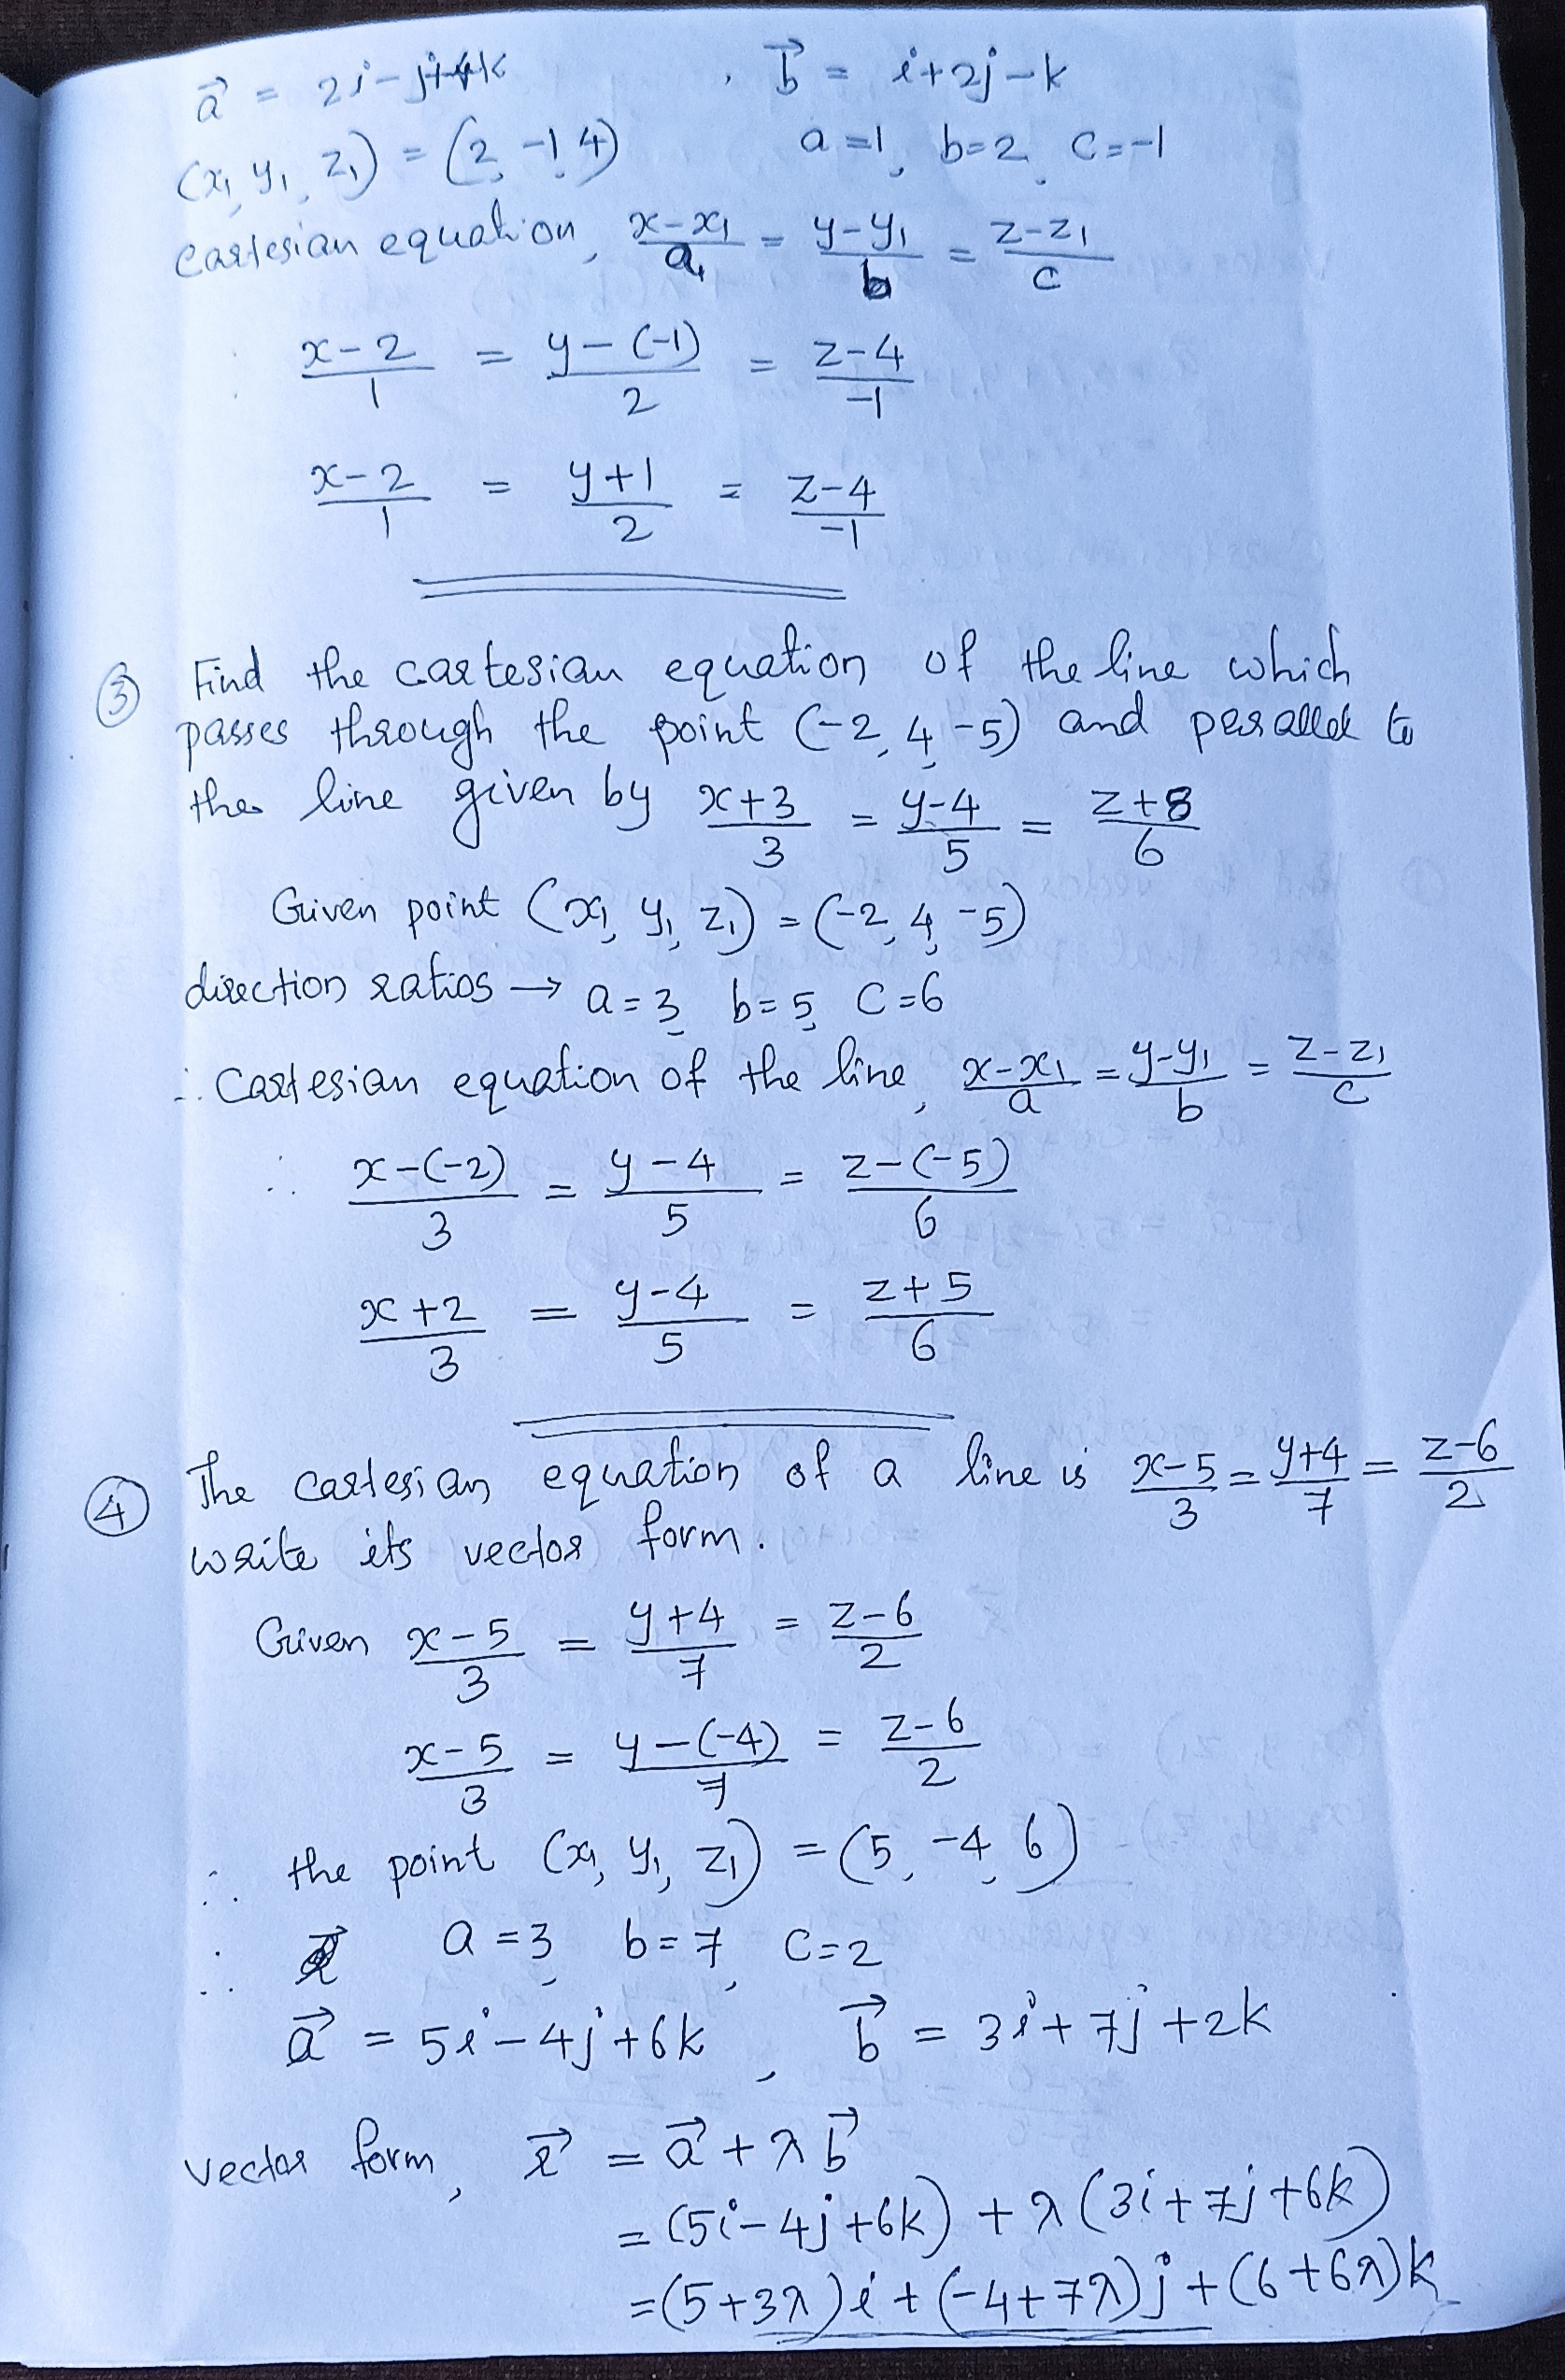 a⃗ = 2i-j+4k , b⃗ = i+2j-k
(x₁, y₁, z₁) = (2, -1, 4) a=1, b=2, c=-1
Cartesian equation, (x-x₁)/a₁ = (y-y₁)/b = (z-z₁)/c
(x-2)/1 = (y-(-1))/2 = (z-4)/-1
(x-2)/1 = (y+1)/2 = (z-4)/-1
③ Find the cartesian equation of the line which
passes through the point (-2, 4, -5) and parallel to
the line given by (x+3)/3 = (y-4)/5 = (z+8)/6
Given point (x₁, y₁, z₁) = (-2, 4, -5)
direction ratios → a=3, b=5, c=6
∴ Cartesian equation of the line, (x-x₁)/a = (y-y₁)/b = (z-z₁)/c
∴ (x-(-2))/3 = (y-4)/5 = (z-(-5))/6
(x+2)/3 = (y-4)/5 = (z+5)/6
④ The cartesian equation of a line is (x-5)/3 = (y+4)/7 = (z-6)/2
write its vector form.
Given (x-5)/3 = (y+4)/7 = (z-6)/2
(x-5)/3 = (y-(-4))/7 = (z-6)/2
∴ the point (x₁, y₁, z₁) = (5, -4, 6)
∴ a=3, b=7, c=2
a⃗ = 5i-4j+6k , b⃗ = 3i+7j+2k
vector form, r⃗ = a⃗ + λb⃗
= (5i-4j+6k) + λ(3i+7j+6k)
= (5+3λ)i + (-4+7λ)j + (6+6λ)k